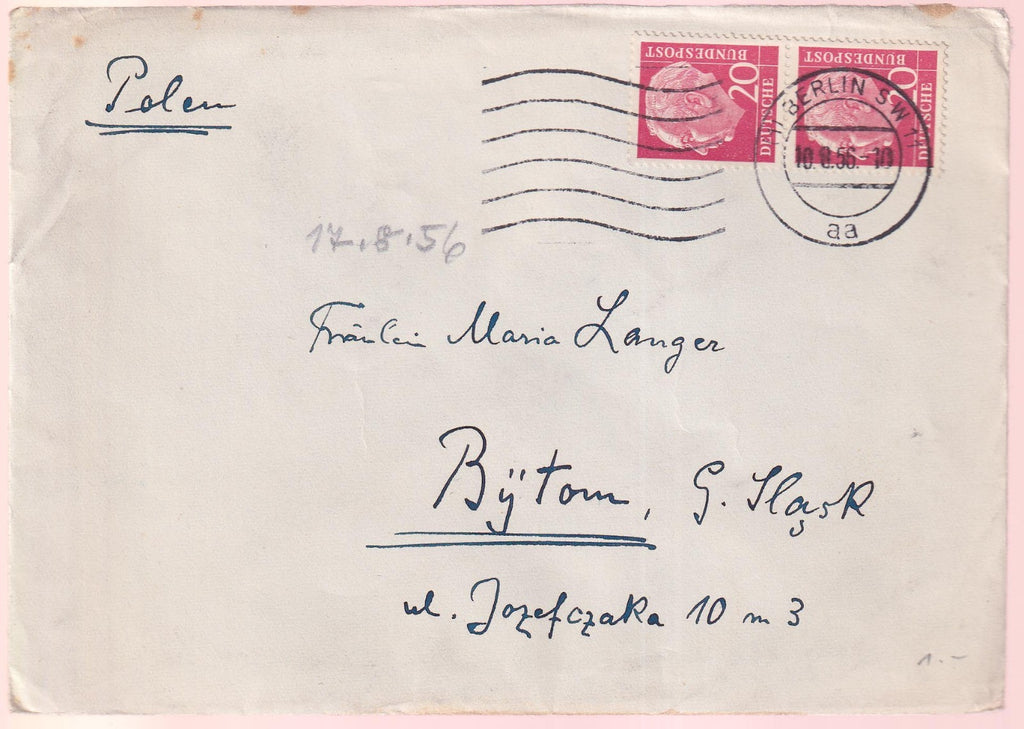 Polen
BUNDESPOST
20
DEUTSCHE
BUNDESPOST
20
DEUTSCHE
BERLIN SW 11
10.8.56.-10
aa
17.8.56
Fräulein Maria Langer
Bÿtom, G. Sląsk
ul. Jozefczaka 10 m 3
1.-